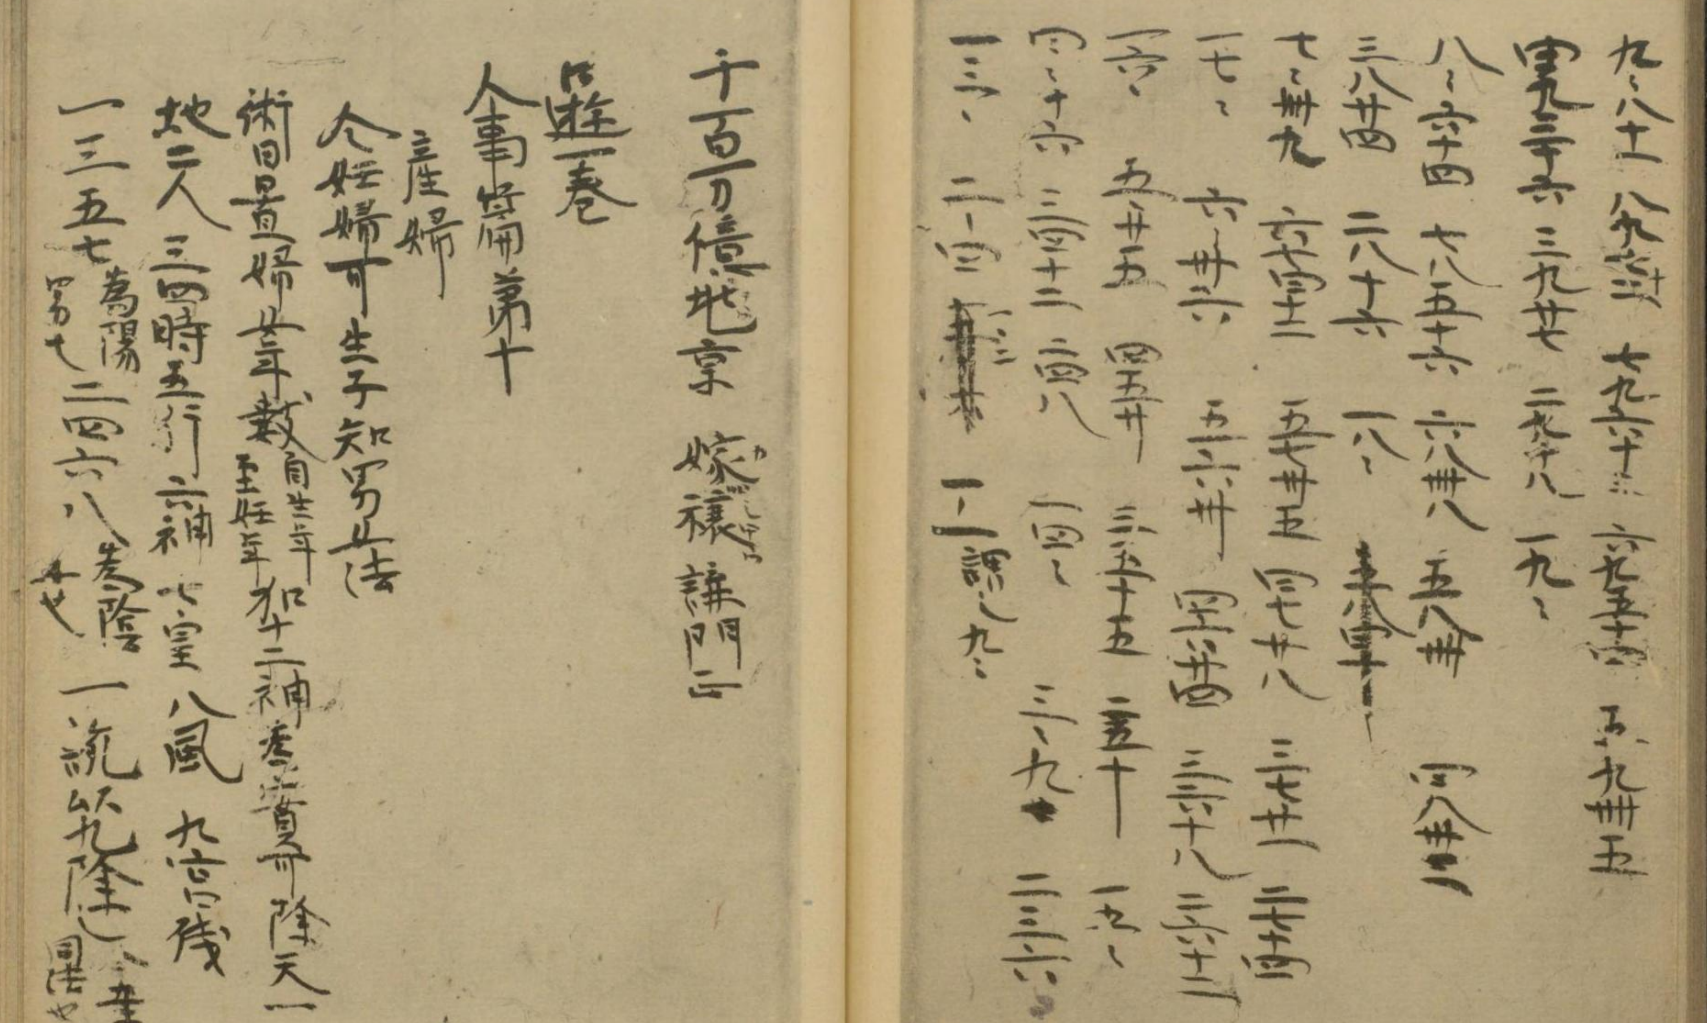 九〻八十一 八九七十二 七九六十三 六九五十四 五九卌五
四九三十六 三九廿七 二九十八 一九〻
八〻六十四 七八五十六 六八卌八 五八卌 四八卅二
三八廿四 二八十六 一八〻
七〻卌九 六七四十二 五七卅五 四七廿八 三七廿一 二七十四
一七〻 六〻卅六 五六卅 四六廿四 三六十八 二六十二
一六〻 五〻廿五 四五廿 三五十五 二五十 一五〻
四〻十六 三四十二 二四八 一四〻 三〻九 二三六
一三〻 二〻四 一二〻 一〻一 謂之九〻
千百万億兆京
口遊一巻
人事篇第十
産婦
今妊婦可生子知男女法
術曰置婦女年数自生年至妊年加十二神為實可除天一
地二人三四時五行六神七星八風九宮残
一三五七為陽男也二四六八為陰女也一説以九除之